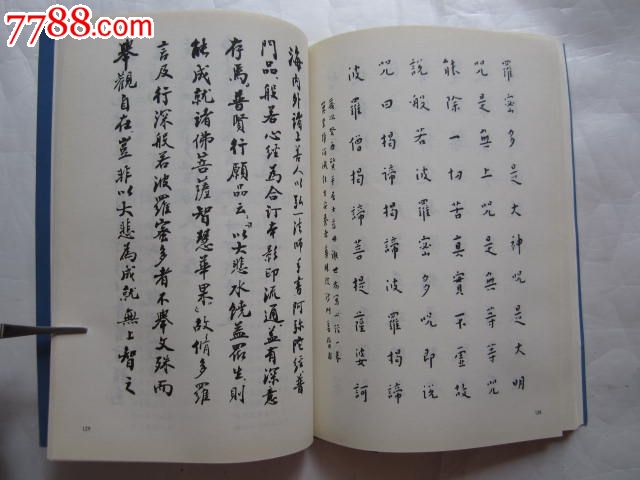 7788.com
羅密多是大神呪是大明
呪是無上呪是無等等呪
能除一切苦真實不虛故
說般若波羅密多呪即說
呪曰揭諦揭諦波羅揭諦
波羅僧揭諦菩提薩婆訶
128
海內外諸上善人以弘一法師手書阿彌陀經普
門品、般若心經為合訂本影印流通、益有深意
存焉。普賢行願品云、以大悲水饒益眾生、則
能成就諸佛菩薩智慧華果、故脩多羅
言及行深般若波羅密多者不舉文殊而
舉觀自在豈非以大悲為成就無上智之
129